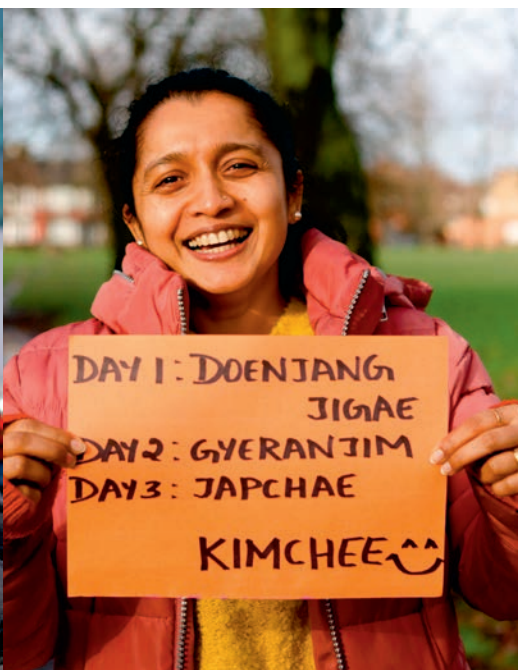 DAY 1: DOENJANG
JIGAE
DAY2: GYERANJIM
DAY3: JAPCHAE
KIMCHEE